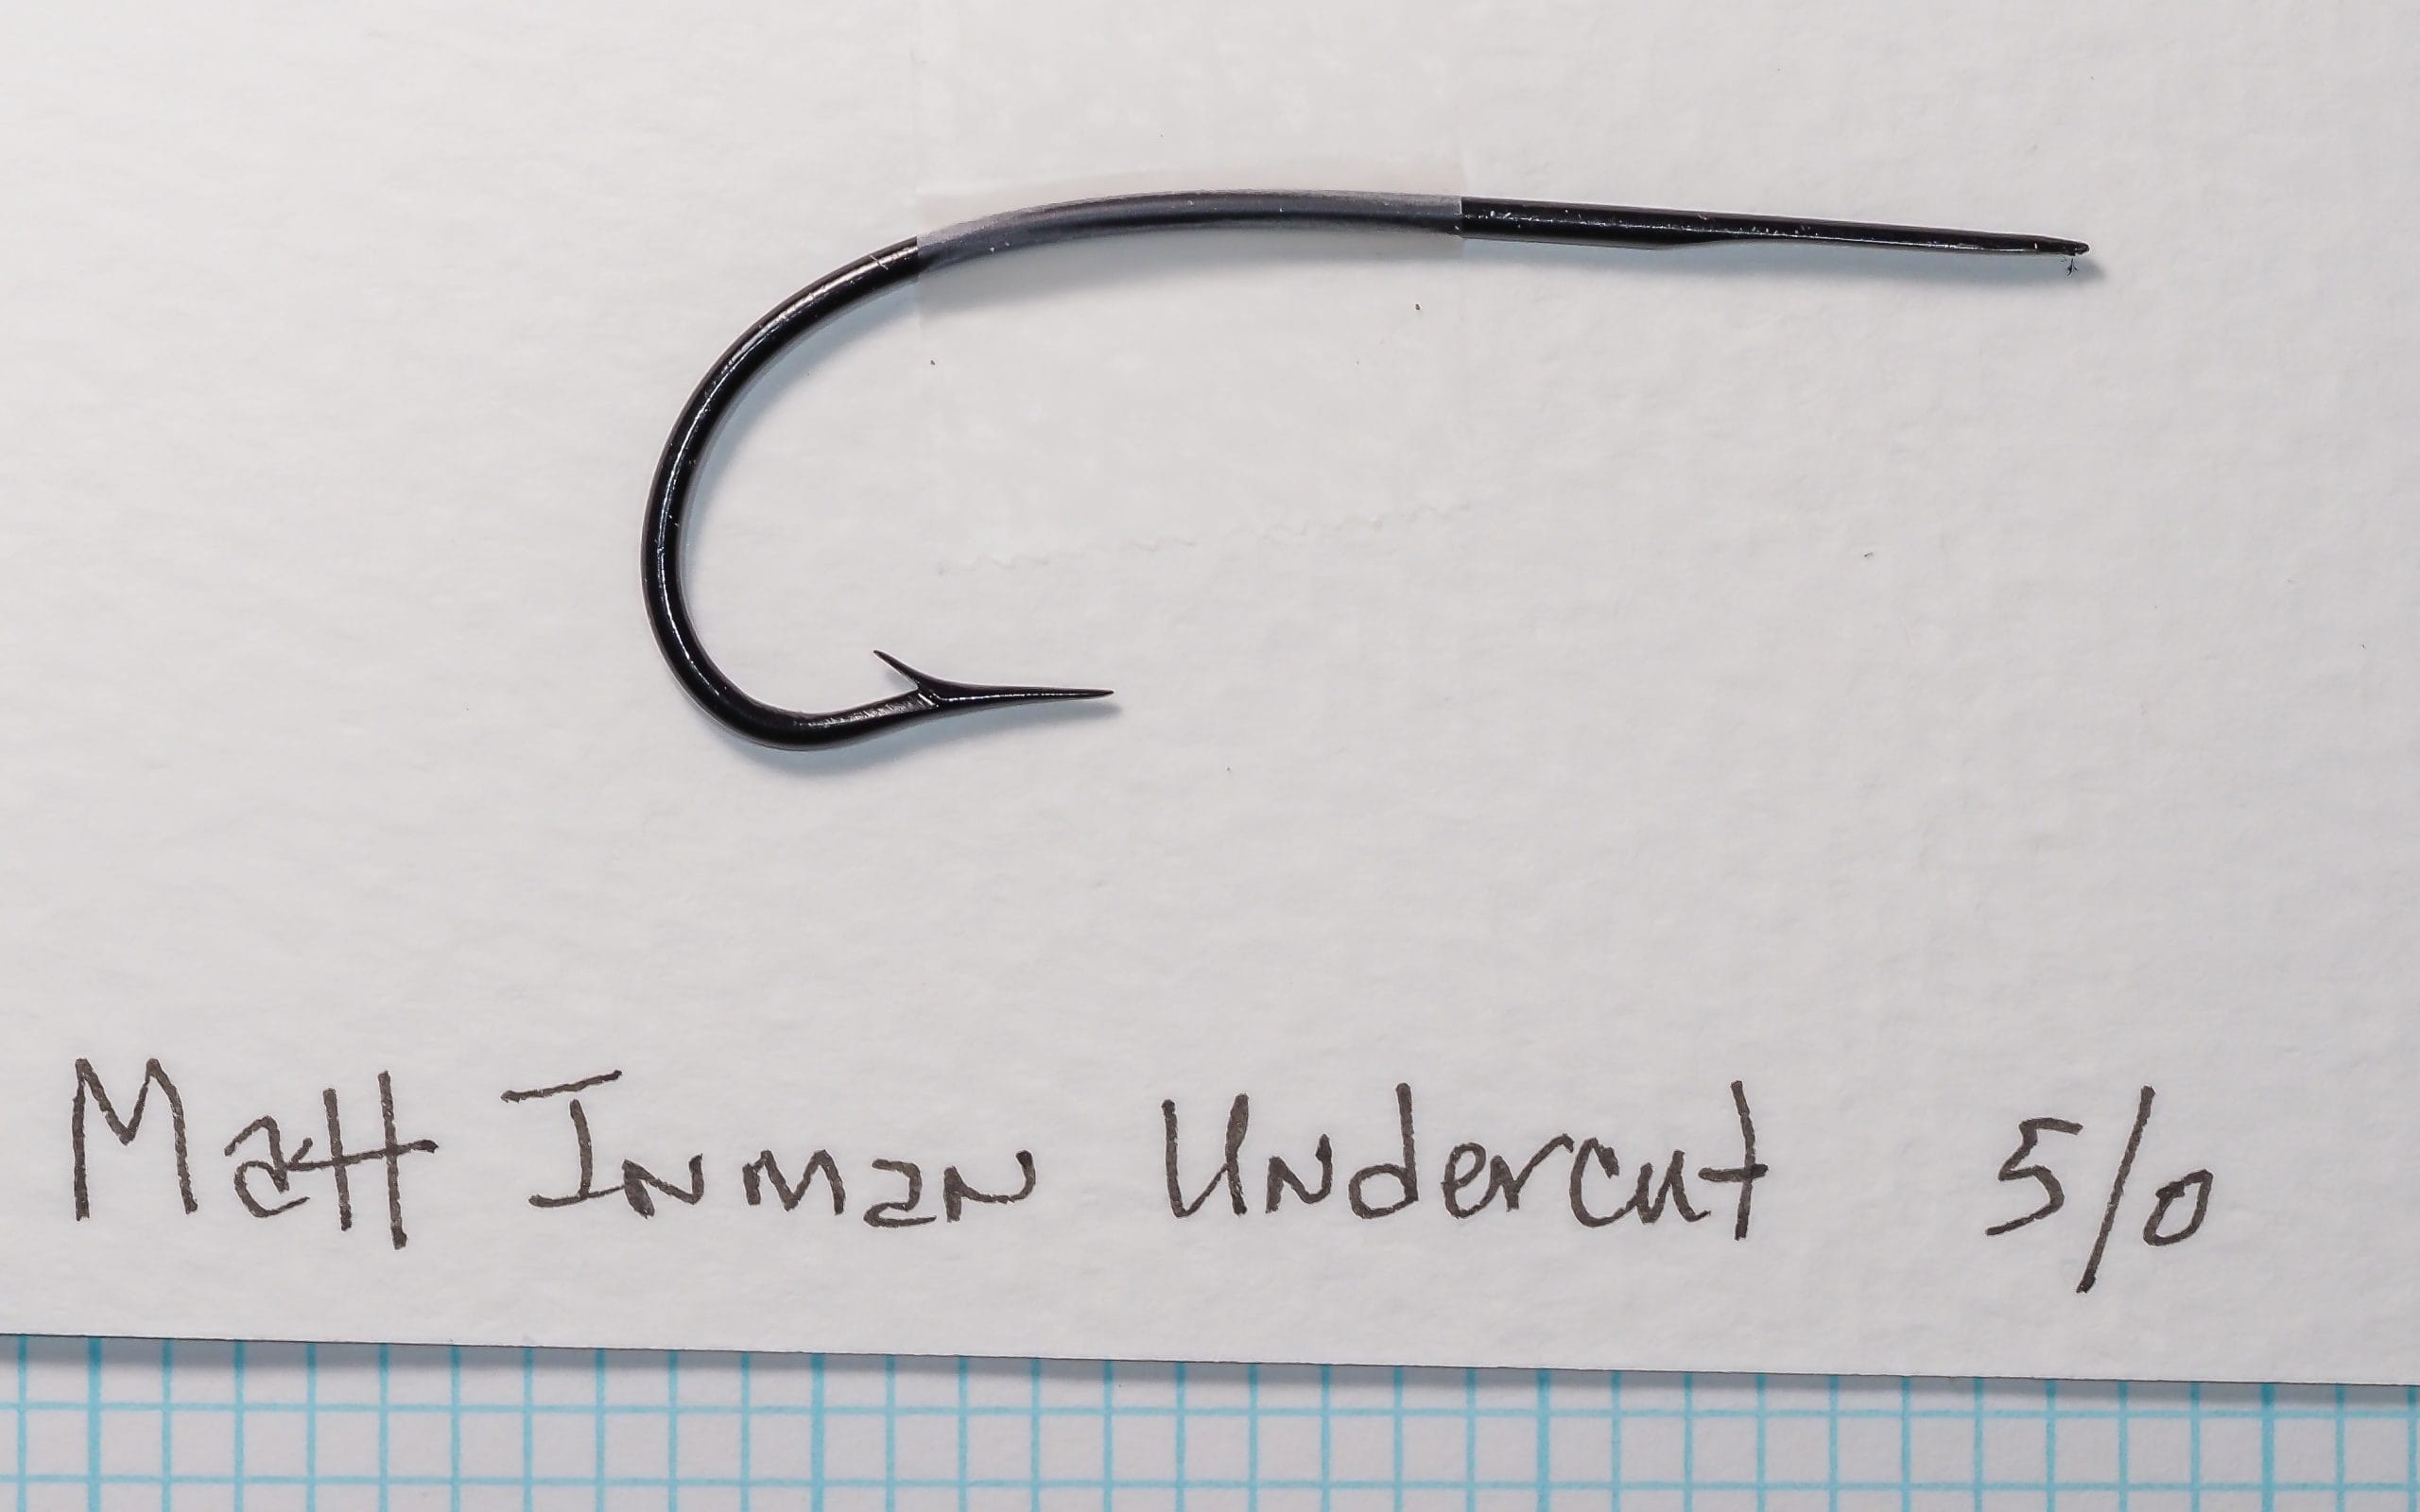 Matt Inman Undercut 5/0